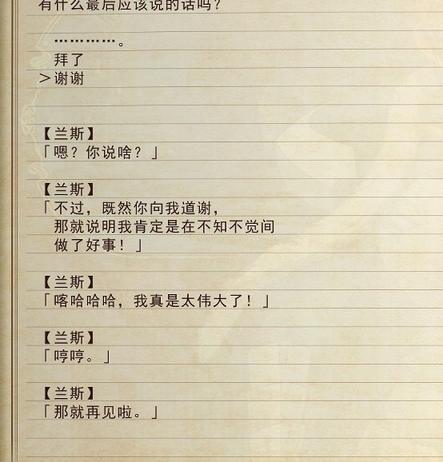 有什么最后应该说的话吗?
…………。
拜了
＞谢谢
【兰斯】
「嗯？你说啥？」
【兰斯】
「不过，既然你向我道谢，
那就说明我肯定是在不知不觉间
做了好事！」
【兰斯】
「喀哈哈哈，我真是太伟大了！」
【兰斯】
「哼哼。」
【兰斯】
「那就再见啦。」